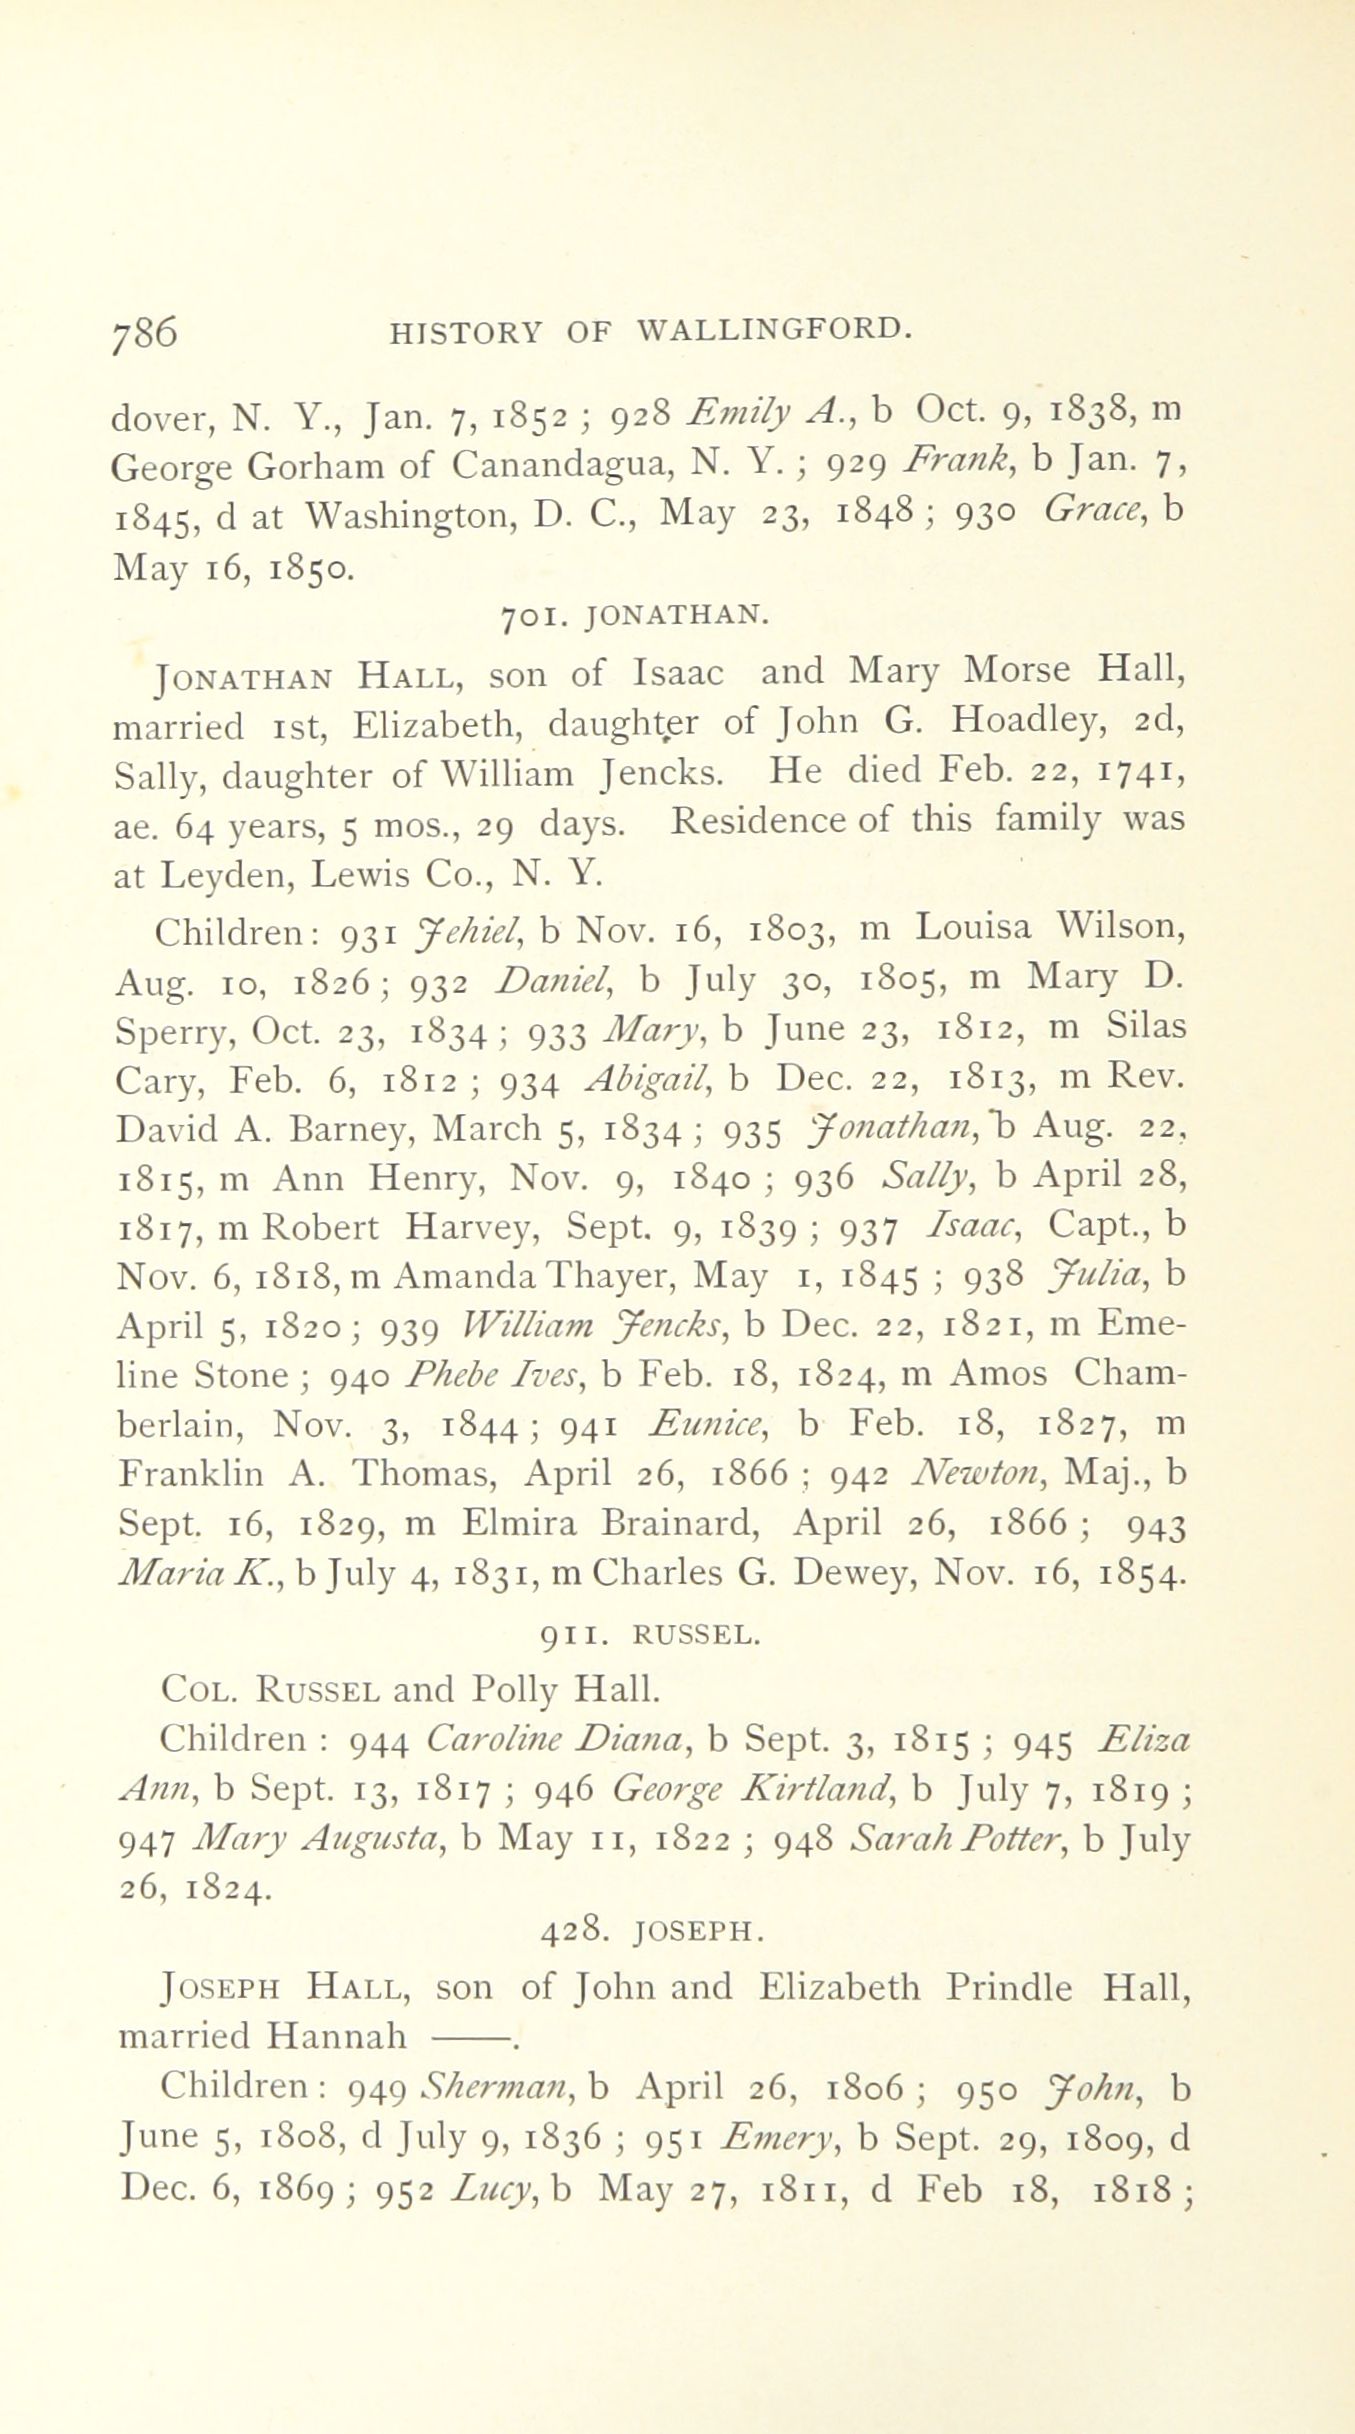 786 HISTORY OF WALLINGFORD.
dover, N. Y., Jan. 7, 1852 ; 928 Emily A., b Oct. 9, 1838, m
George Gorham of Canandagua, N. Y. ; 929 Frank, b Jan. 7,
1845, d at Washington, D. C., May 23, 1848 ; 930 Grace, b
May 16, 1850.
701. JONATHAN.
JONATHAN HALL, son of Isaac and Mary Morse Hall,
married 1st, Elizabeth, daughter of John G. Hoadley, 2d,
Sally, daughter of William Jencks. He died Feb. 22, 1741,
ae. 64 years, 5 mos., 29 days. Residence of this family was
at Leyden, Lewis Co., N. Y.
Children: 931 Jehiel, b Nov. 16, 1803, m Louisa Wilson,
Aug. 10, 1826 ; 932 Daniel, b July 30, 1805, m Mary D.
Sperry, Oct. 23, 1834 ; 933 Mary, b June 23, 1812, m Silas
Cary, Feb. 6, 1812 ; 934 Abigail, b Dec. 22, 1813, m Rev.
David A. Barney, March 5, 1834 ; 935 Jonathan, b Aug. 22,
1815, m Ann Henry, Nov. 9, 1840 ; 936 Sally, b April 28,
1817, m Robert Harvey, Sept. 9, 1839 ; 937 Isaac, Capt., b
Nov. 6, 1818, m Amanda Thayer, May 1, 1845 ; 938 Julia, b
April 5, 1820 ; 939 William Jencks, b Dec. 22, 1821, m Eme-
line Stone ; 940 Phebe Ives, b Feb. 18, 1824, m Amos Cham-
berlain, Nov. 3, 1844 ; 941 Eunice, b Feb. 18, 1827, m
Franklin A. Thomas, April 26, 1866 ; 942 Newton, Maj., b
Sept. 16, 1829, m Elmira Brainard, April 26, 1866 ; 943
Maria K., b July 4, 1831, m Charles G. Dewey, Nov. 16, 1854.
911. RUSSEL.
COL. RUSSEL and Polly Hall.
Children : 944 Caroline Diana, b Sept. 3, 1815 ; 945 Eliza
Ann, b Sept. 13, 1817 ; 946 George Kirtland, b July 7, 1819 ;
947 Mary Augusta, b May 11, 1822 ; 948 Sarah Potter, b July
26, 1824.
428. JOSEPH.
JOSEPH HALL, son of John and Elizabeth Prindle Hall,
married Hannah ——.
Children : 949 Sherman, b April 26, 1806 ; 950 John, b
June 5, 1808, d July 9, 1836 ; 951 Emery, b Sept. 29, 1809, d
Dec. 6, 1869 ; 952 Lucy, b May 27, 1811, d Feb 18, 1818 ;